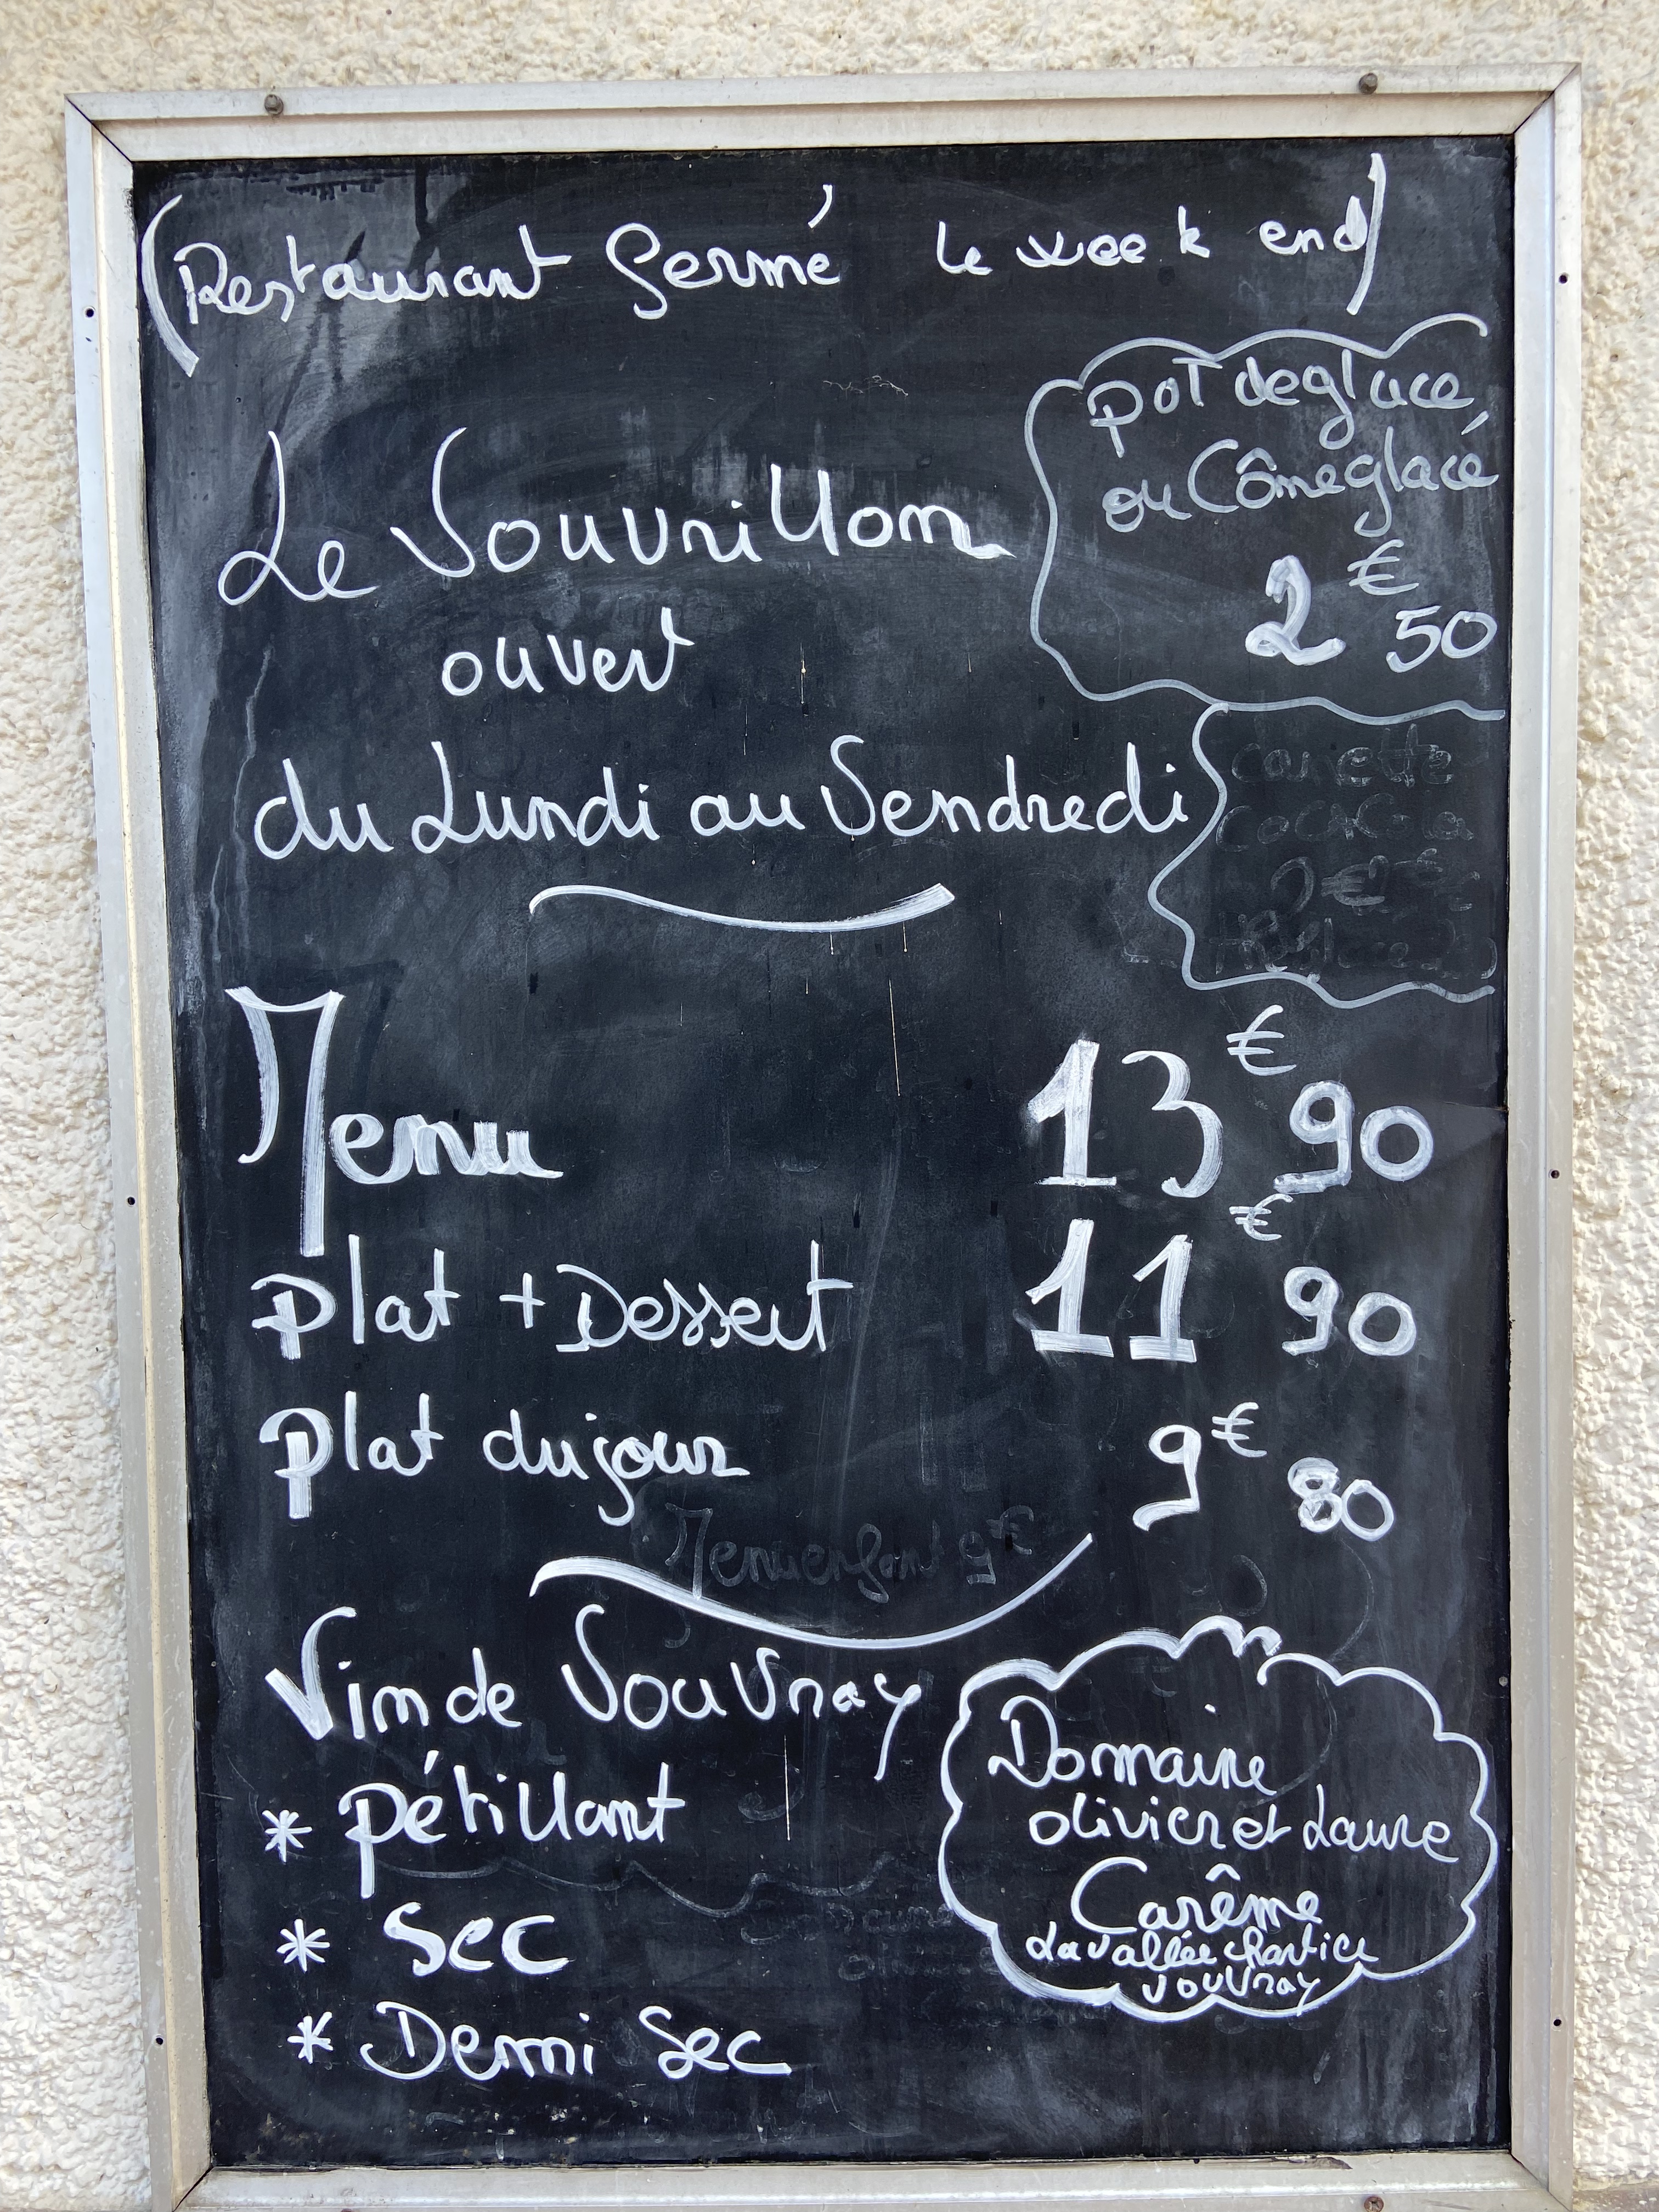 (Restaurant fermé le week end)
pot de glace
ou Cône glacé
2€50
Le Vouvrillon
ouvert
du Lundi au Vendredi
canette
Coca Cola
Menu 13€90
plat + Dessert 11€90
plat du jour 9€80
Menu enfant 9€
Vin de Vouvray
* pétillant
* Sec
* Demi Sec
Domaine
olivier et Laure
Carême
La vallée chartier
vouvray